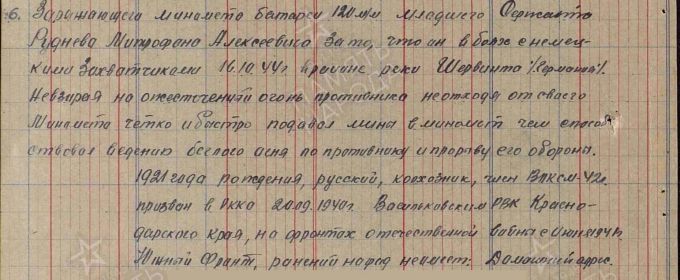 6. Заряжающего миномета батареи 120 м/м младшего Сержанта
Руднева Митрофана Алексеевича За то, что он в боях с немец-
кими Захватчиками 16.10.44г в районе реки Шервинта /Германия/.
Невзирая на ожесточенный огонь противника не отходя от своего
Миномета четко и быстро подавал мины в миномет чем способ
ствовал ведению беглого огня по противнику и прорыву его обороны.
1921 года рождения, русский, колхозник, член ВЛКСМ-42г.
призван в РККА 20.09.1940г. Васильковским РВК Красно-
дарского края, на фронтах отечественной войны с 1941г
Южный Фронт, ранений наград не имеет. Домашний адрес.